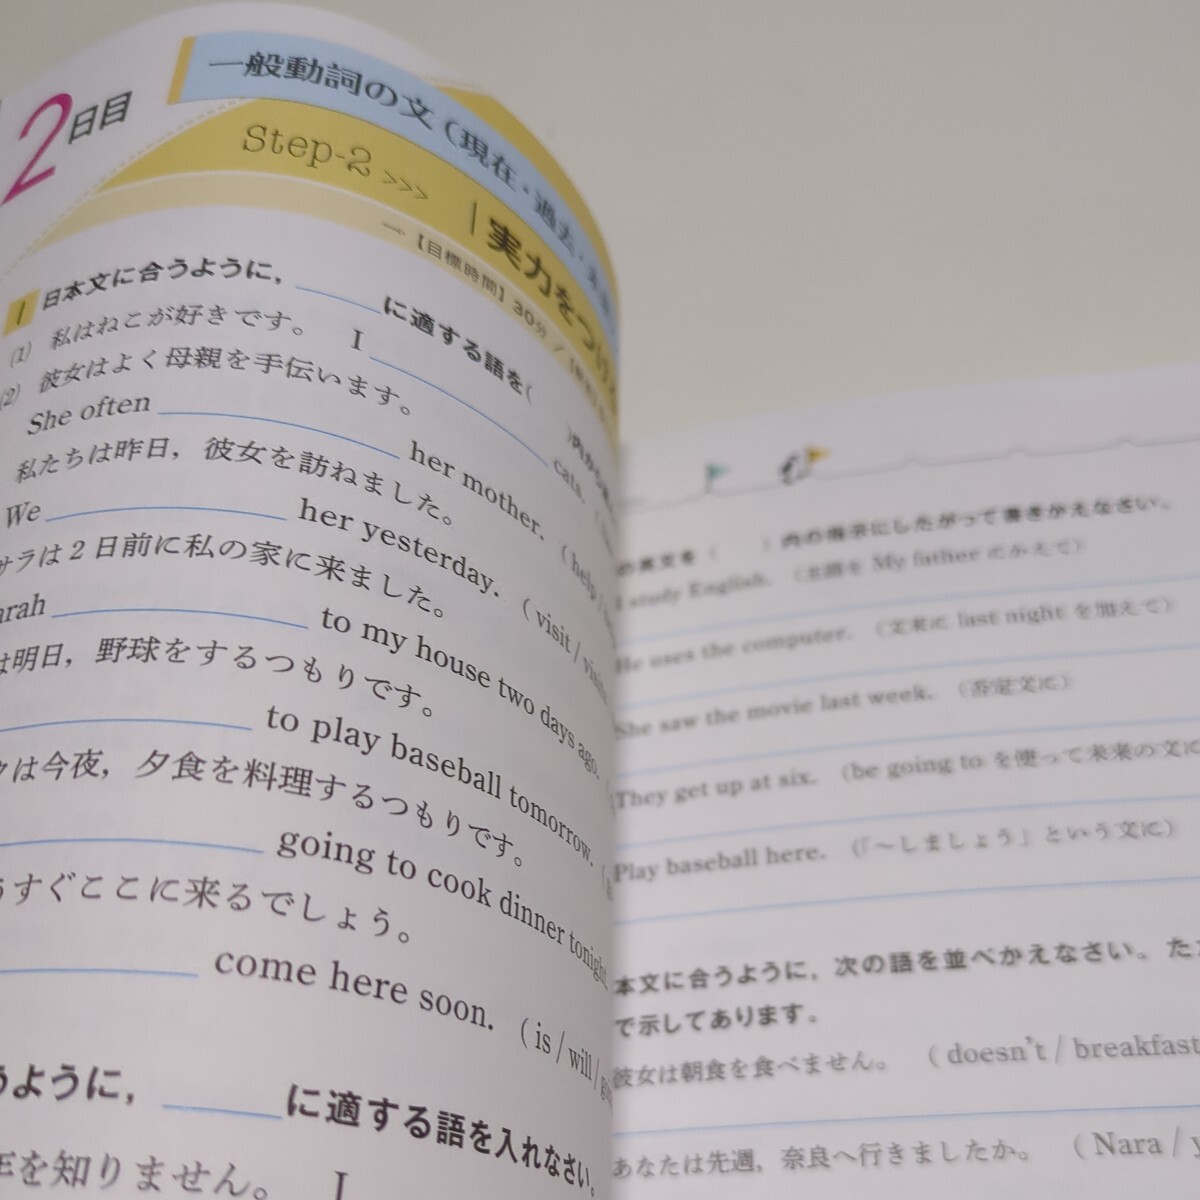 2日目
一般動詞の文（現在・過去・
Step-2 >>> 実力をつける
【目標時間】30分／
1 日本文に合うように，＿＿＿に適する語を（　）内から
(1) 私はねこが好きです。 I ＿＿＿ cats.
(2) 彼女はよく母親を手伝います。
She often ＿＿＿ her mother. ( help /
私たちは昨日，彼女を訪ねました。
We ＿＿＿ her yesterday. ( visit /
サラは2日前に私の家に来ました。
arah ＿＿＿ to my house two days ago. (
は明日，野球をするつもりです。
＿＿＿ to play baseball tomorrow. (
は今夜，夕食を料理するつもりです。
＿＿＿ going to cook dinner tonight.
うすぐここに来るでしょう。
＿＿＿ come here soon. ( is / will /
うように，＿＿＿に適する語を入れなさい。
を知りません。 I
の英文を（　）内の指示にしたがって書きかえなさい。
I study English. （主語を My father にかえて）
He uses the computer. （文末に last night を加えて）
She saw the movie last week. （否定文に）
They get up at six. （be going to を使って未来の文に
Play baseball here. （「～しましょう」という文に）
本文に合うように，次の語を並べかえなさい。た
で示してあります。
彼女は朝食を食べません。 ( doesn't / breakfast
あなたは先週，奈良へ行きましたか。 ( Nara /